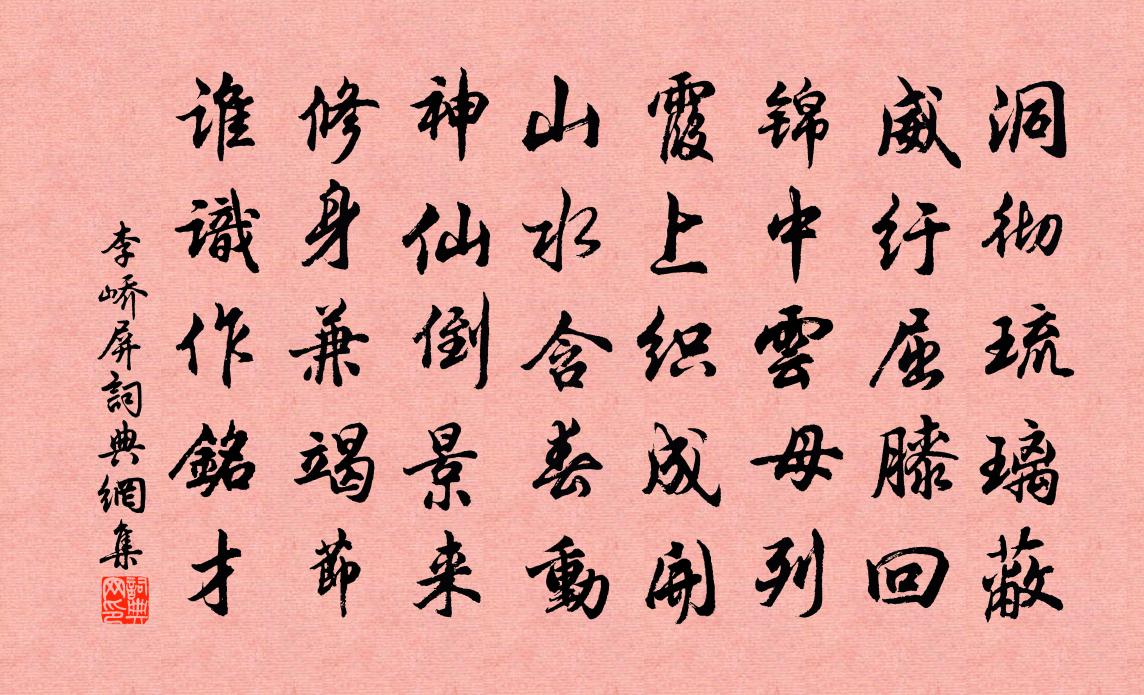 洞彻琉璃蔽
威纡屈膝回
锦中雲母列
霞上织成開
山水含春動
神仙倒景来
修身兼竭節
谁識作銘才
李峤屏詞典網集
詞典网印